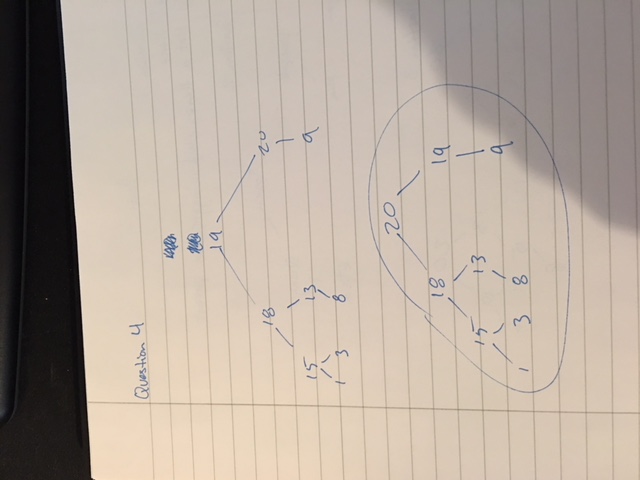 Question 4
19
18 20
15 13 9
1 3 8
20
18 19
15 13 9
1 3 8